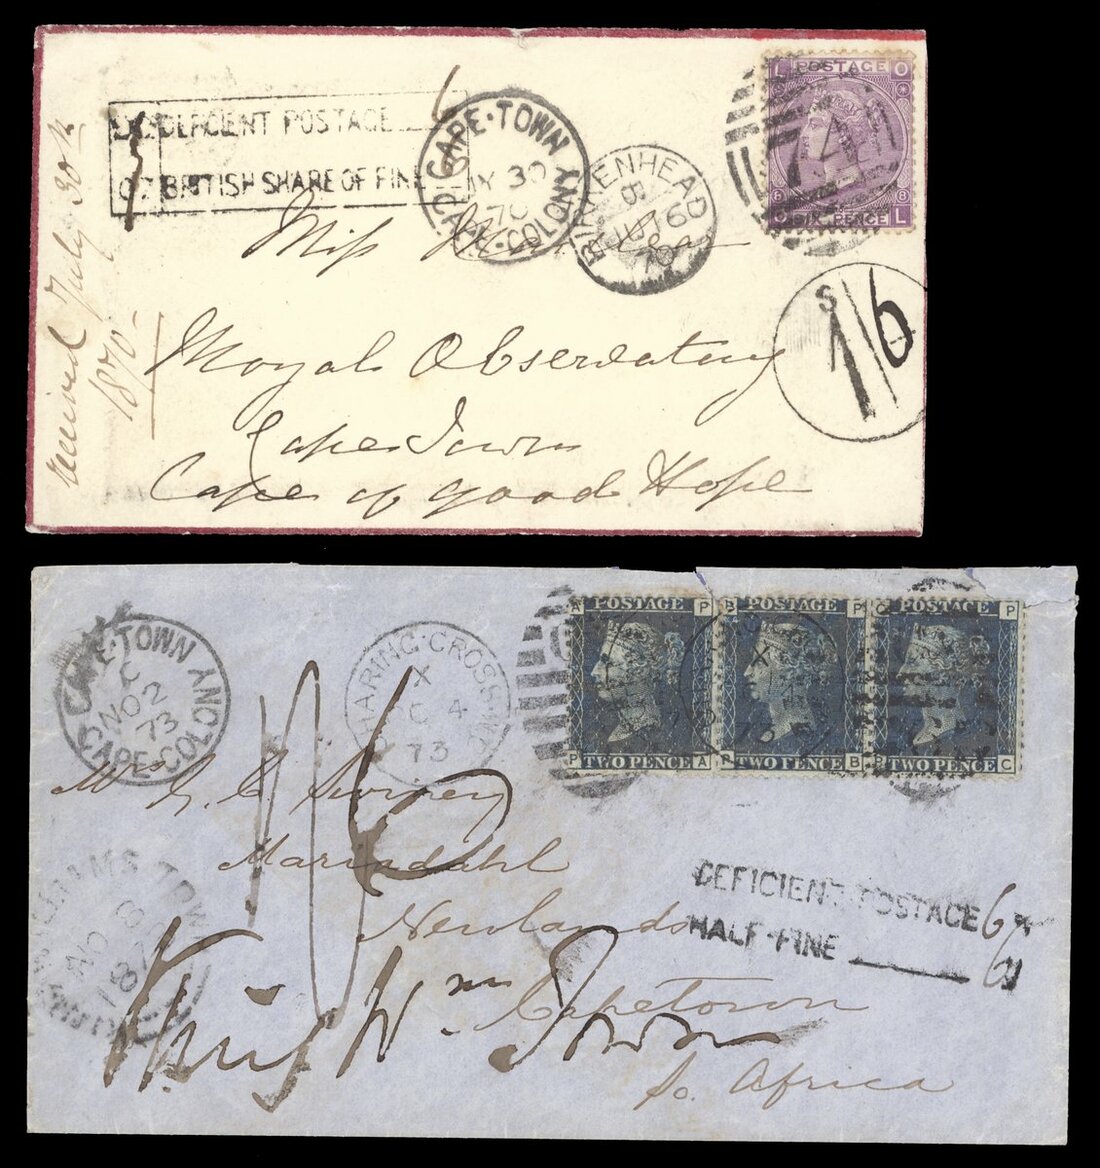 DEFICIENT POSTAGE 6
BRITISH SHARE OF FINE
CAPE·TOWN
30
70
CAPE·COLONY
BIRKENHEAD
6
70
L POSTAGE O
8 8
O SIX PENCE L
S
1/6
Miss
Royal Observatory
Cape Town
Cape of good Hope
received July 30th
1870
CAPE·TOWN
C
NO 2
73
CAPE·COLONY
CHARING·CROSS·W.C
X
C 4
73
A POSTAGE P
P TWO PENCE A
B POSTAGE P
P TWO PENCE B
C POSTAGE P
P TWO PENCE C
1/6
Mariadahl
Newlands
Capetown
So. Africa
King Wm Town
DEFICIENT POSTAGE 6
HALF-FINE 6
WILLIAMS TOWN
NO 6
187